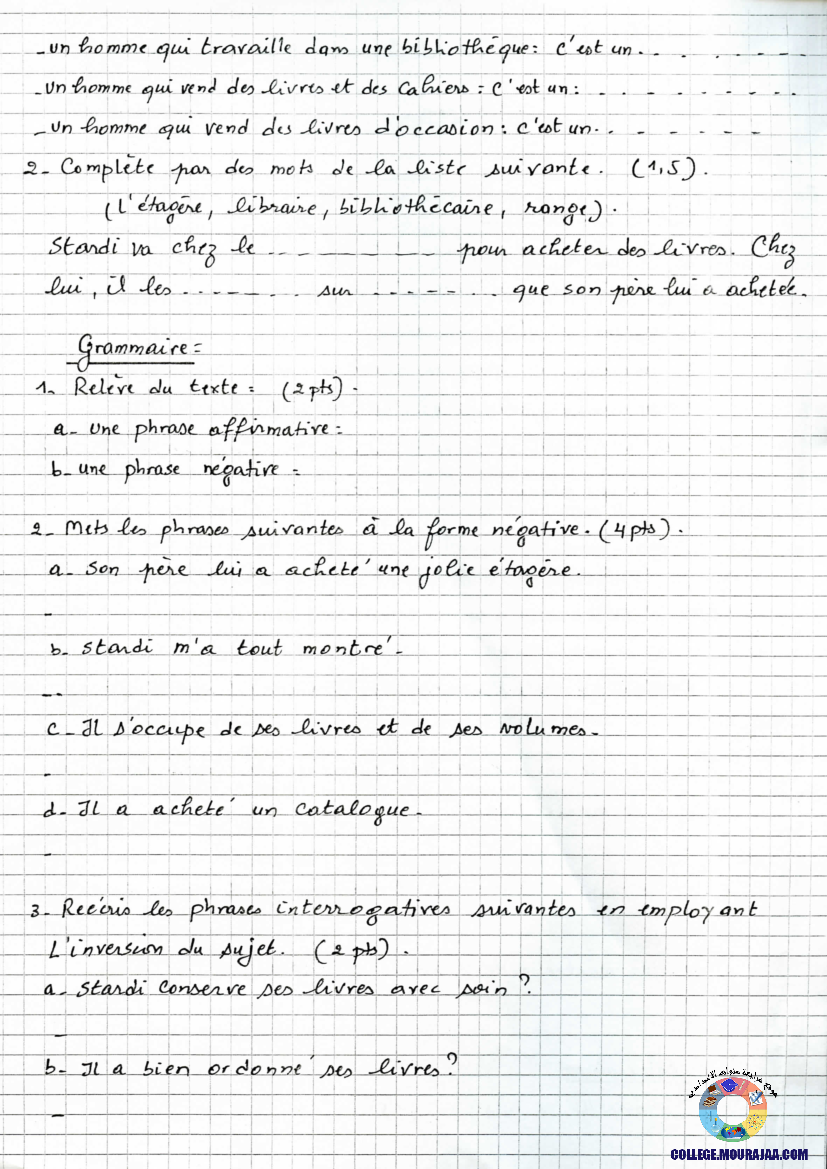 - un homme qui travaille dans une bibliothèque : c'est un. . . . . - - - -
- un homme qui vend des livres et des cahiers : c'est un : - - - - - - - - - -
- un homme qui vend des livres d'occasion : c'est un. . - - - - - -
2 - Complète par des mots de la liste suivante. (1,5).
(L'étagère, libraire, bibliothécaire, range).
Stardi va chez le - - - - - - - - - - pour acheter des livres. Chez
lui, il les - - - - - - - sur - - - - - - que son père lui a achetée.
Grammaire :
1. Relève du texte : (2 pts).
a - une phrase affirmative :
b - une phrase négative :
2 - Mets les phrases suivantes à la forme négative. (4 pts).
a - Son père lui a acheté une jolie étagère.
-
b - Stardi m'a tout montré.
--
c - Il s'occupe de ses livres et de ses volumes.
-
d - Il a acheté un catalogue.
-
3 - Reécris les phrases interrogatives suivantes en employant
L'inversion du sujet. (2 pts).
a - Stardi conserve ses livres avec soin ?
-
b - Il a bien ordonné ses livres ?
-
COLLEGE.MOURAJAA.COM